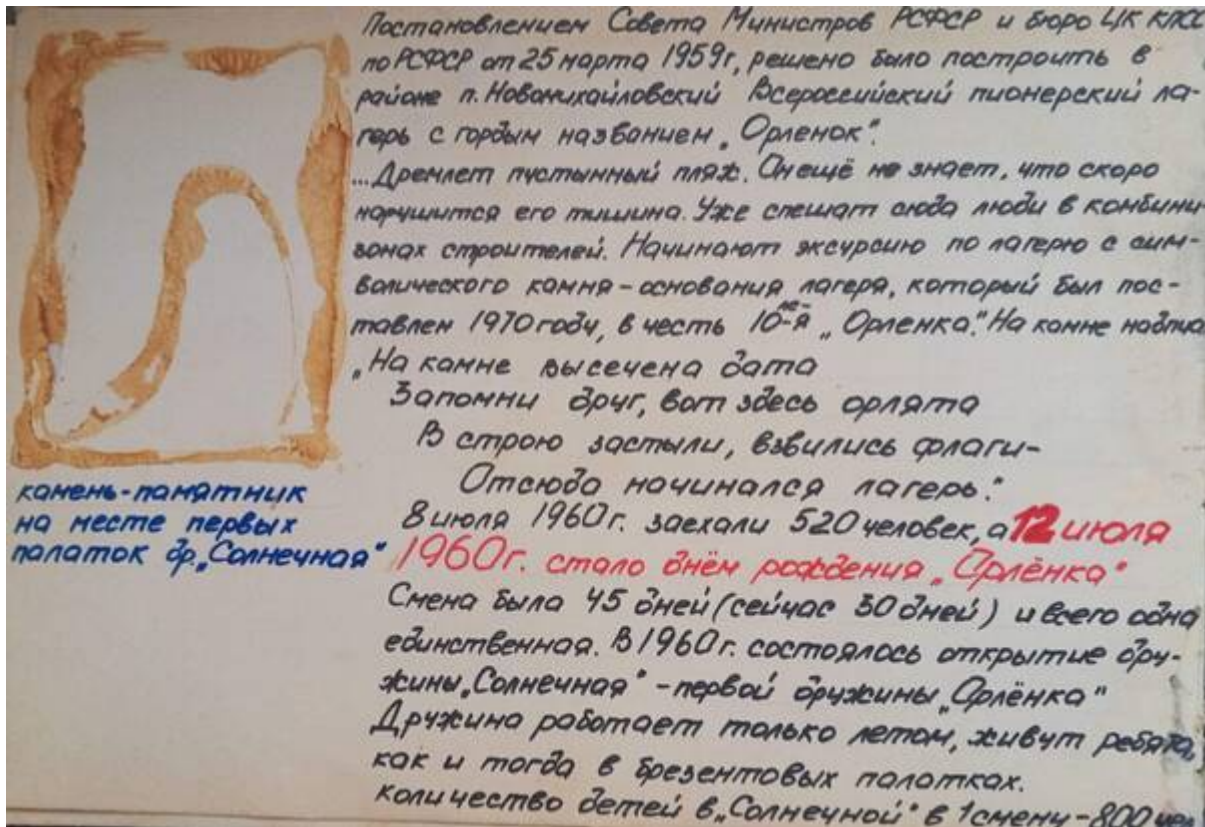 Постановлением Совета Министров РСФСР и бюро ЦК КПСС
по РСФСР от 25 марта 1959г, решено было построить в
районе п. Новомихайловский Всероссийский пионерский ла-
герь с гордым названием „Орленок".
...Дремлет пустынный пляж. Он ещё не знает, что скоро
нарушится его тишина. Уже спешат сюда люди в комбини-
зонах строителей. Начинают экскурсию по лагерю с сим-
волического камня-основания лагеря, который был пос-
тавлен 1970 году, в честь 10-ле-я „Орленка". На камне надпись
„На камне высечена дата
Запомни друг, вот здесь орлята
В строю застыли, взвились флаги-
Отсюда начинался лагерь."
8 июля 1960г. заехали 520 человек, а 12 июля
1960г. стало днём рождения „Орлёнка"
Смена была 45 дней (сейчас 30 дней) и всего одна
единственная. В 1960г. состоялось открытие дру-
жины „Солнечная" - первой дружины „Орлёнка"
Дружина работает только летом, живут ребята,
как и тогда в брезентовых палатках.
количество детей в „Солнечной" в 1 смену - 800 чел
камень-памятник
на месте первых
палаток др. „Солнечная"